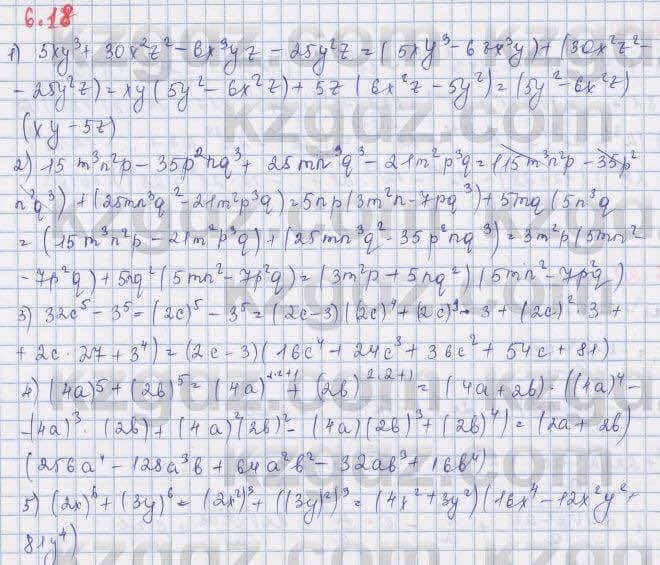 6.18
1) 5xy³ + 30x²z² - 6x³yz - 25y²z = (5xy³ - 6zx³y) + (30x²z² -
- 25y²z) = xy(5y² - 6x²z) + 5z(6x²z - 5y²) = (5y² - 6x²z)
(xy - 5z)
2) 15m³n²p - 35p²nq³ + 25mn³q³ - 21m²p³q = (15m³n²p - 35p²
n³q³) + (25mn³q² - 21m²p³q) = 5np(3m²n - 7pq³) + 5mq(5n³q
= (15m³n²p - 21m²p³q) + (25mn³q² - 35p²nq³) = 3m²p(5mn²
- 7p²q) + 5nq²(5mn² - 7p²q) = (3m²p + 5nq²)(5mn² - 7p²q)
3) 32c⁵ - 3⁵ = (2c)⁵ - 3⁵ = (2c - 3)((2c)⁴ + (2c)³ · 3 + (2c)² · 3 +
+ 2c · 27 + 3⁴) = (2c - 3)(16c⁴ + 24c³ + 36c² + 54c + 81)
4) (4a)⁵ + (2b)⁵ = (4a)²·²⁺¹ + (2b)²·²⁺¹ = (4a + 2b) · ((4a)⁴ -
- (4a)³ · (2b) + (4a)²(2b)² - (4a)(2b)³ + (2b)⁴) = (2a + 2b)
(256a⁴ - 128a³b + 64a²b² - 32ab³ + 16b⁴)
5) (2x)⁶ + (3y)⁶ = (2x²)³ + ((3y)²)³ = (4x² + 3y²)(16x⁴ - 12x²y² +
81y⁴)
kzgdz.com